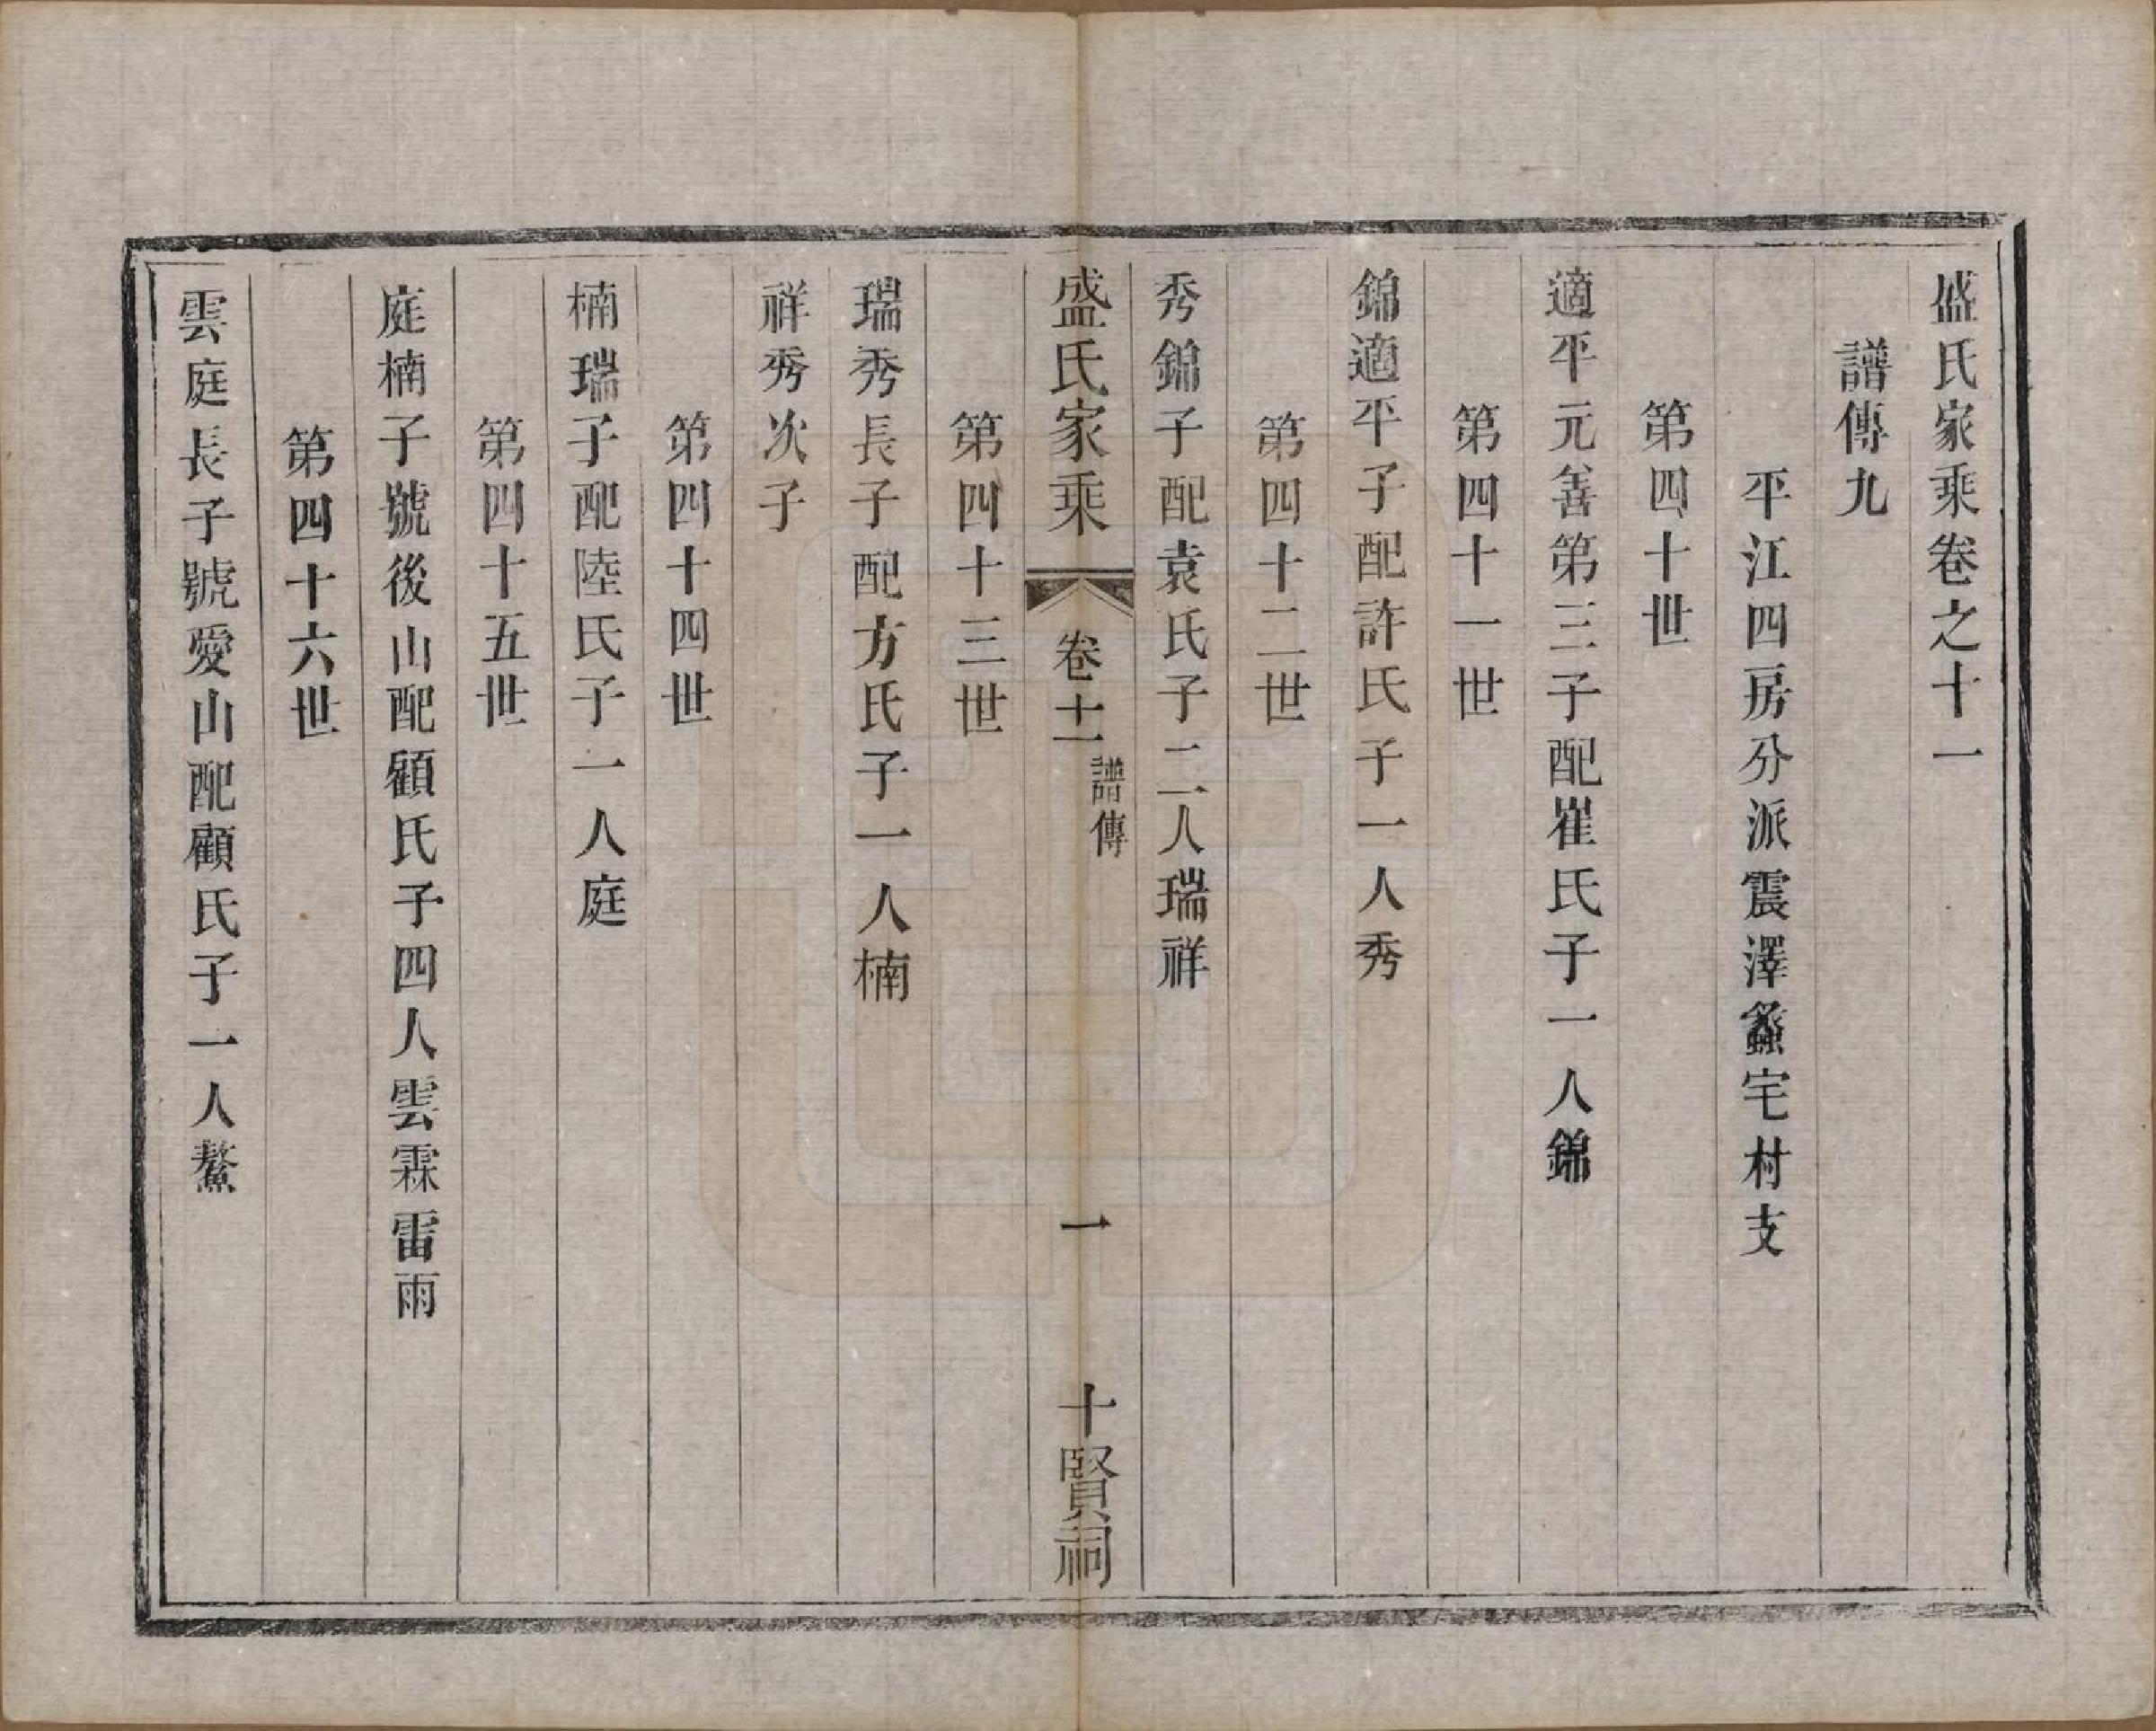 盛氏家乘卷之十一
譜傳九
平江四房分派震澤蠡宅村支
第四十世
適平元善第三子配崔氏子一人錦
第四十一世
錦適平子配許氏子一人秀
第四十二世
秀錦子配袁氏子二人瑞祥
盛氏家乘 卷十一 譜傳 一 十賢祠
第四十三世
瑞秀長子配方氏子一人楠
祥秀次子
第四十四世
楠瑞子配陸氏子一人庭
第四十五世
庭楠子號後山配顧氏子四人雲霖雷雨
第四十六世
雲庭長子號愛山配顧氏子一人鰲